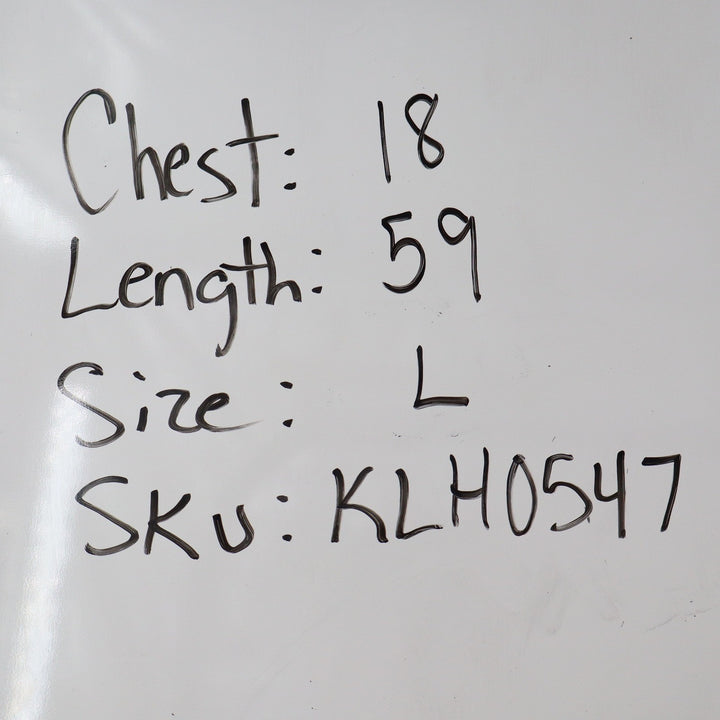 Chest: 18
Length: 59
Size: L
SKU: KLH0547